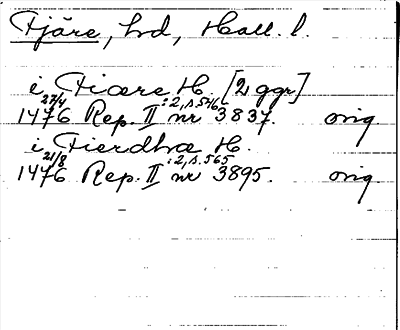 Fjäre, hd, Hall. l.
i Fiære H. [2 ggr]
1476 27/4 Rep. II :2, s. 546 nr 3837. orig.
i Fierdhæ H.
1476 21/8 Rep. II :2, s. 565 nr 3895. orig.